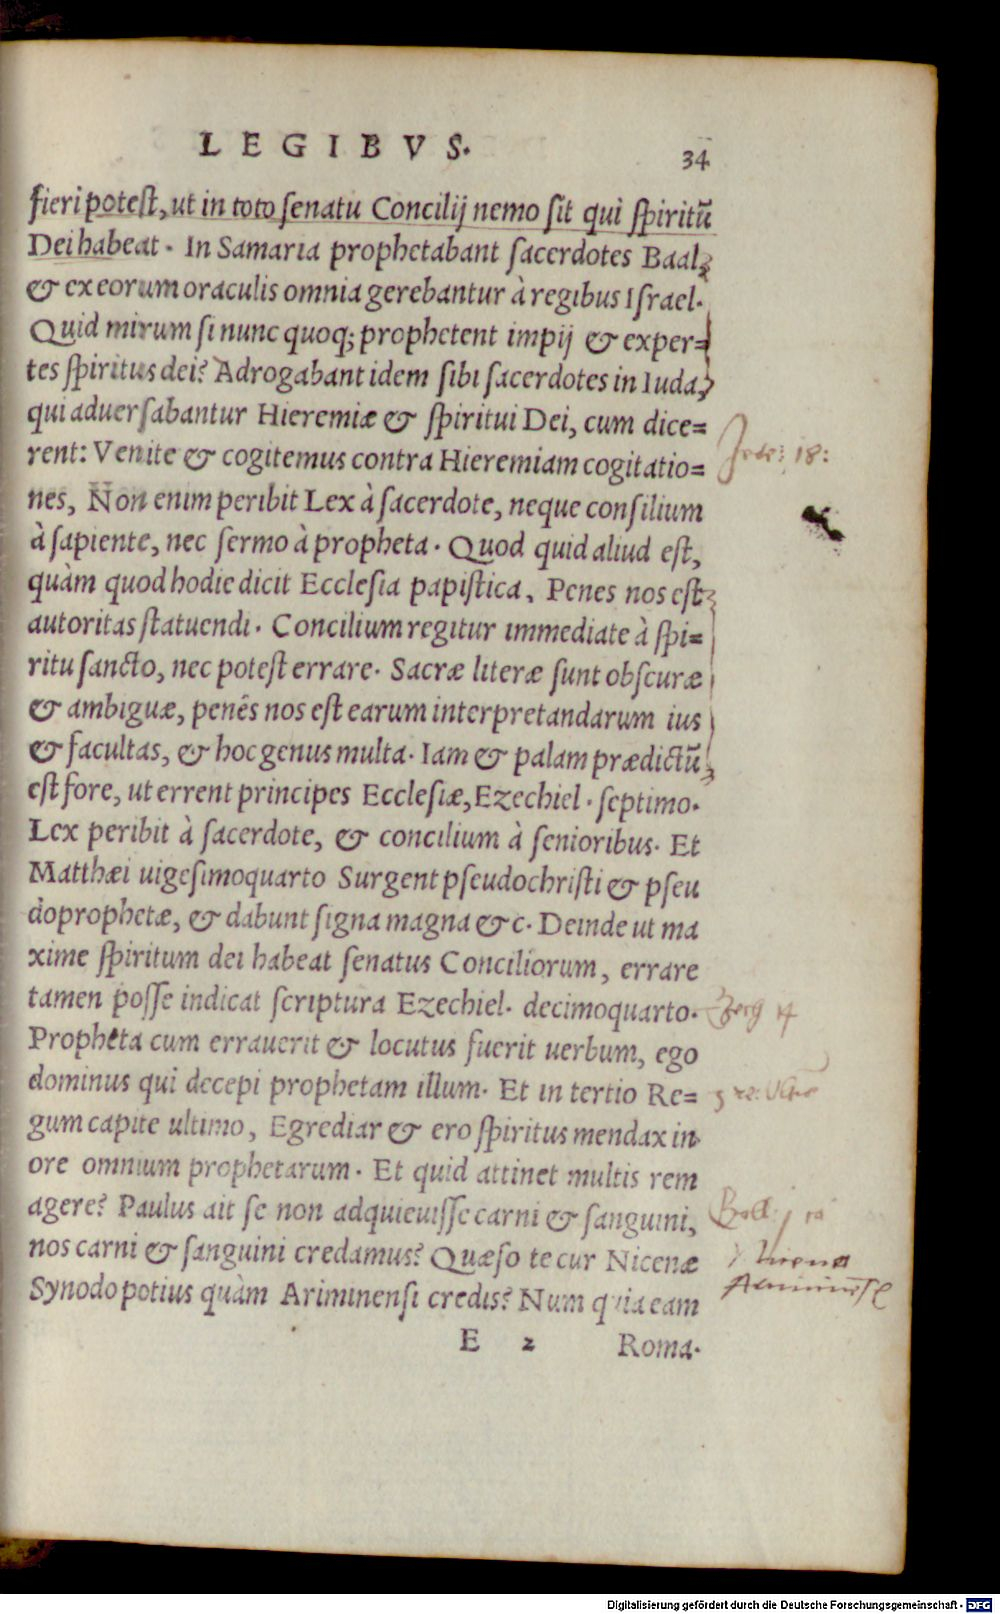 LEGIBVS.
34
fieri potest, ut in toto senatu Concilij nemo sit qui spiritũ
Dei habeat. In Samaria prophetabant sacerdotes Baal,
& ex eorum oraculis omnia gerebantur à regibus Israel.
Quid mirum si nunc quoq; prophetent impij & exper=
tes spiritus dei? Adrogabant idem sibi sacerdotes in Iuda,
qui aduersabantur Hieremiæ & spiritui Dei, cum dice=
rent: Venite & cogitemus contra Hieremiam cogitatio=
nes, Non enim peribit Lex à sacerdote, neque consilium
à sapiente, nec sermo à propheta. Quod quid aliud est,
quàm quod hodie dicit Ecclesia papistica, Penes nos est
autoritas statuendi. Concilium regitur immediate à spi=
ritu sancto, nec potest errare. Sacræ literæ sunt obscuræ
& ambiguæ, penês nos est earum interpretandarum ius
& facultas, & hoc genus multa. Iam & palam prædictũ
est fore, ut errent principes Ecclesiæ, Ezechiel. septimo.
Lex peribit à sacerdote, & concilium à senioribus. Et
Matthæi uigesimoquarto Surgent pseudochristi & pseu
doprophetæ, & dabunt signa magna & c. Deinde ut ma
xime spiritum dei habeat senatus Conciliorum, errare
tamen posse indicat scriptura Ezechiel. decimoquarto.
Propheta cum errauerit & locutus fuerit uerbum, ego
dominus qui decepi prophetam illum. Et in tertio Re=
gum capite ultimo, Egrediar & ero spiritus mendax in
ore omnium prophetarum. Et quid attinet multis rem
agere? Paulus ait se non adquieuisse carni & sanguini,
nos carni & sanguini credamus? Quæso te cur Nicenæ
Synodo potius quàm Ariminensi credis? Num quia eam
E 2 Roma.
18:
14
Digitalisierung gefördert durch die Deutsche Forschungsgemeinschaft - DFG